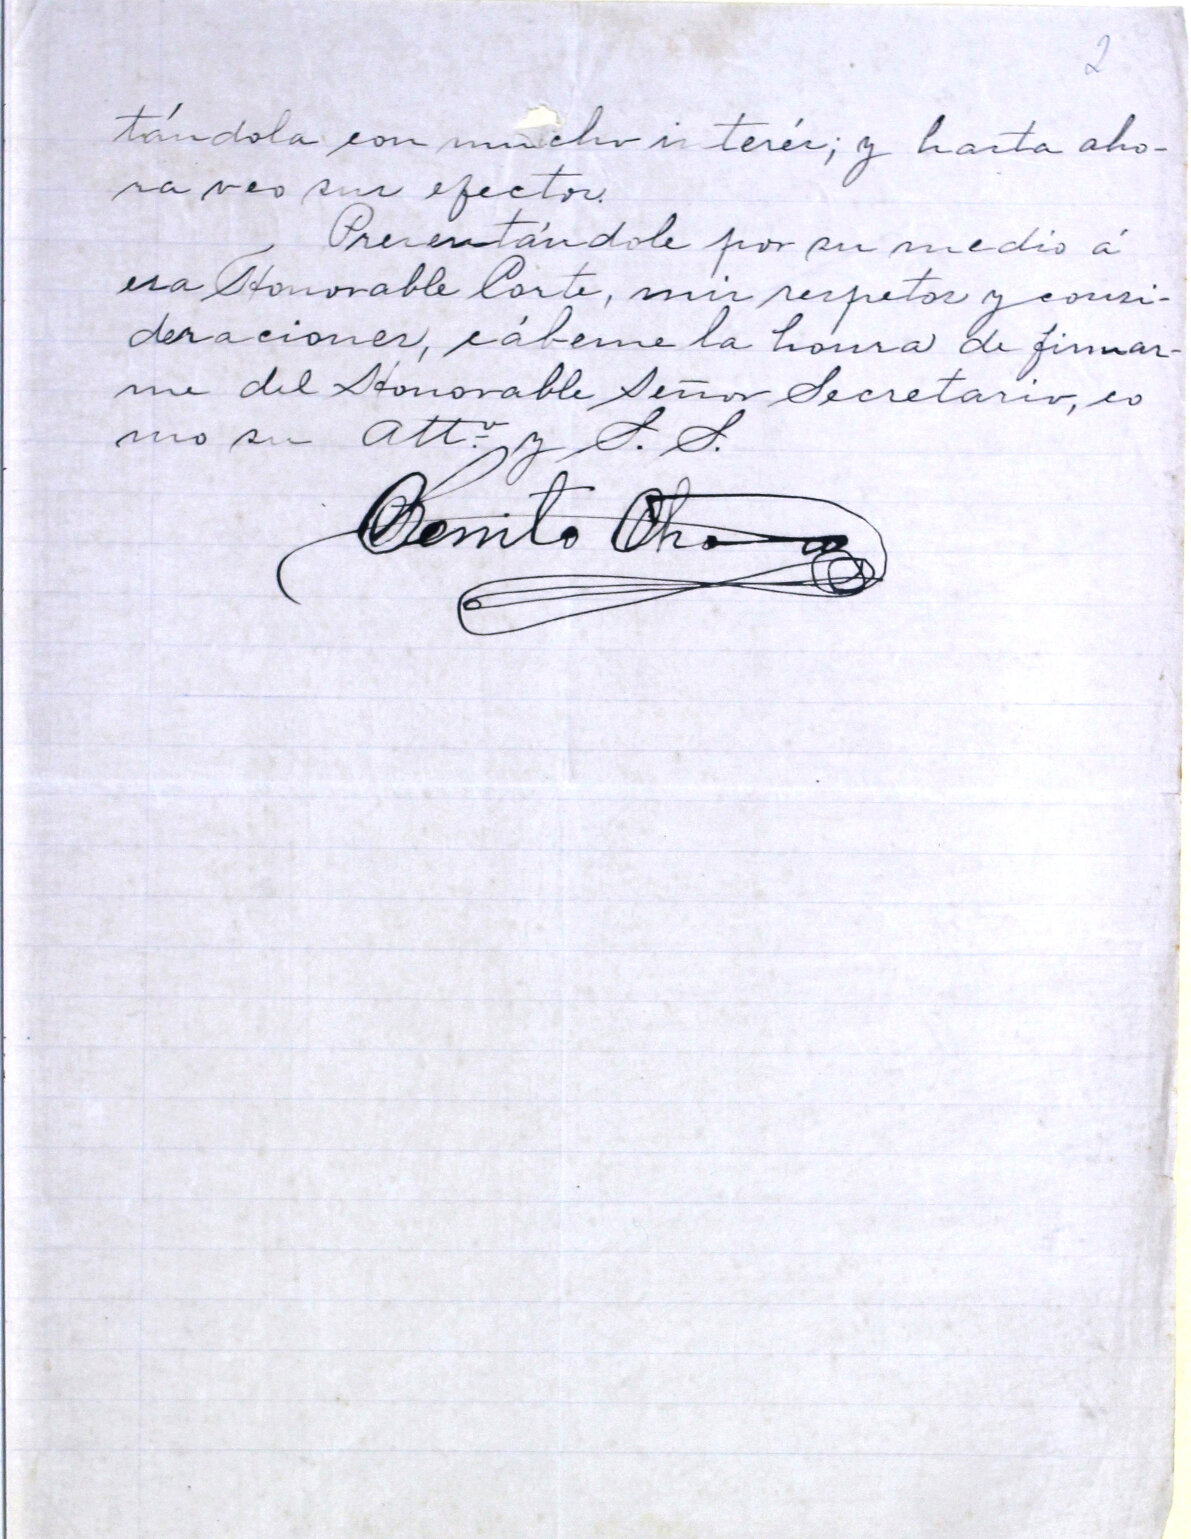 2
tándola con mucho interés; y hasta aho-
ra veo sus efectos.
Presentándole por su medio á
esa Honorable Corte, mis respetos y consi-
deraciones, cábeme la honra de firmar-
me del Honorable Señor Secretario, co
mo su Att.º y S. S.
Benito